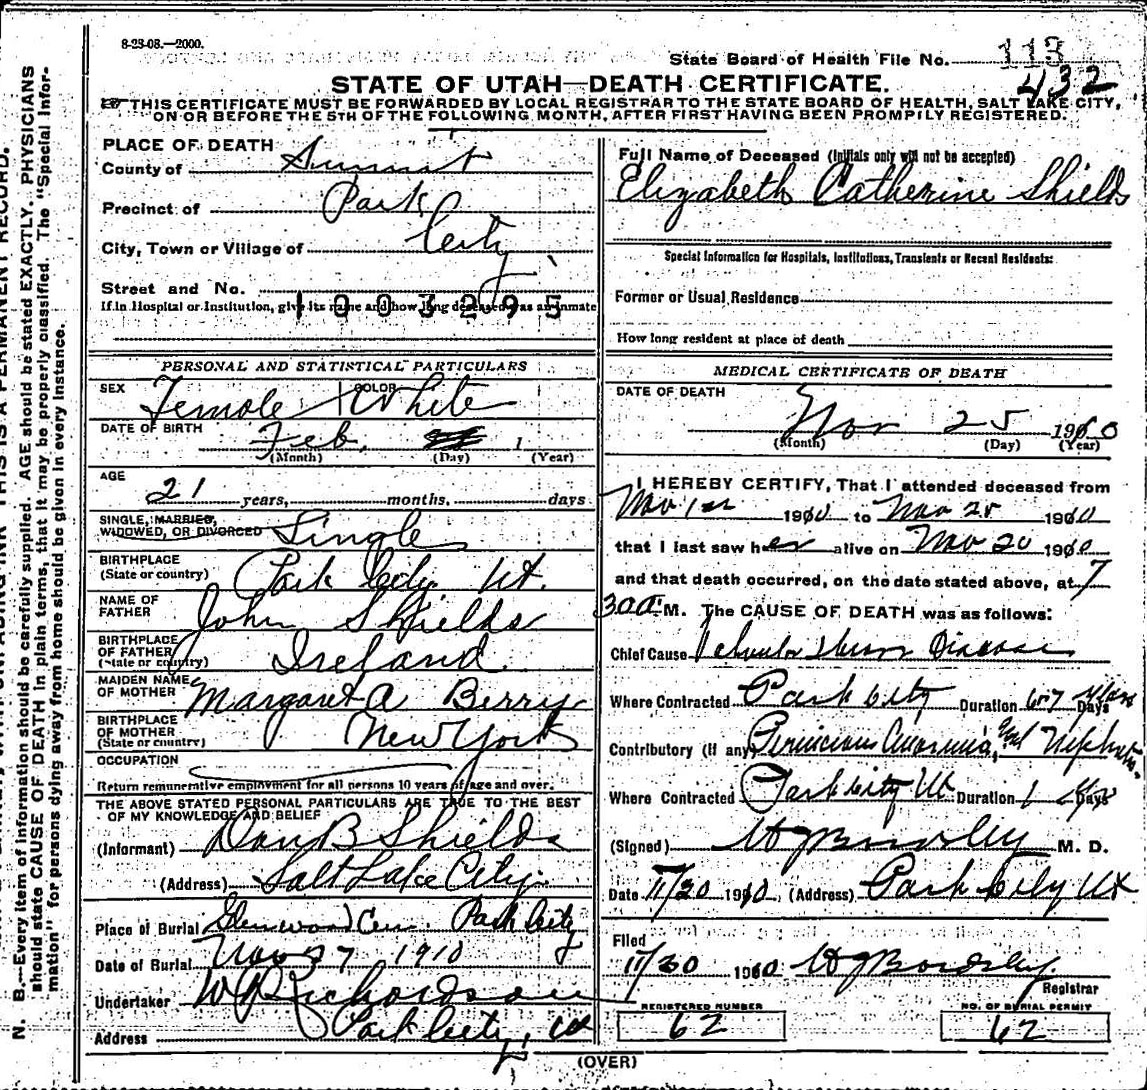 8-23-08.—2000.
State Board of Health File No. 113
432
STATE OF UTAH—DEATH CERTIFICATE.
THIS CERTIFICATE MUST BE FORWARDED BY LOCAL REGISTRAR TO THE STATE BOARD OF HEALTH, SALT LAKE CITY,
ON OR BEFORE THE 5TH OF THE FOLLOWING MONTH, AFTER FIRST HAVING BEEN PROMPILY REGISTERED.
PLACE OF DEATH
County of Summit
Precinct of Park
City, Town or Village of City
Street and No.
If in Hospital or Institution, give its name and how long deceased was an inmate
1003295
PERSONAL AND STATISTICAL PARTICULARS
SEX Female COLOR White
DATE OF BIRTH Feb, 1
(Month) (Day) (Year)
AGE
21 years, months, days
SINGLE, MARRIED,
WIDOWED, OR DIVORCED Single
BIRTHPLACE
(State or country) Park City Ut.
NAME OF
FATHER John Shields
BIRTHPLACE
OF FATHER
(State or country) Ireland
MAIDEN NAME
OF MOTHER Margaret A Berry
BIRTHPLACE
OF MOTHER
(State or country) New York
OCCUPATION
Return remunerative employment for all persons 10 years of age and over.
THE ABOVE STATED PERSONAL PARTICULARS ARE TRUE TO THE BEST
OF MY KNOWLEDGE AND BELIEF
(Informant) Dan B Shields
(Address) Salt Lake City
Place of Burial Glenwood Cem. Park City
Date of Burial Nov 27 1910
Undertaker W R Richardson
Address Park City, Ut
Full Name of Deceased (Initials only will not be accepted)
Elizabeth Catherine Shields
Special Information for Hospitals, Institutions, Transients or Recent Residents:
Former or Usual Residence
How long resident at place of death
MEDICAL CERTIFICATE OF DEATH
DATE OF DEATH
Nov 25 1910
(Month) (Day) (Year)
I HEREBY CERTIFY, That I attended deceased from
Nov 1st 1910 to Nov 25 1910
that I last saw her alive on Nov 20 1910
and that death occurred, on the date stated above, at 7
M. The CAUSE OF DEATH was as follows:
Chief Cause Disease
Where Contracted Park City Duration Days
Contributory (If any) Pernicious Anaemia,
Where Contracted Park City Ut Duration 1 Days
(Signed) M. D.
Date 11/30 1910, (Address) Park City Ut
Filed
11/30 1910
Registrar
REGISTERED NUMBER
62
NO. OF BURIAL PERMIT
62
(OVER)
N. B.—Every item of information should be carefully supplied. AGE should be stated EXACTLY. PHYSICIANS
should state CAUSE OF DEATH in plain terms, that it may be properly classified. The "Special Infor-
mation" for persons dying away from home should be given in every instance.
THIS IS A PERMANENT RECORD.